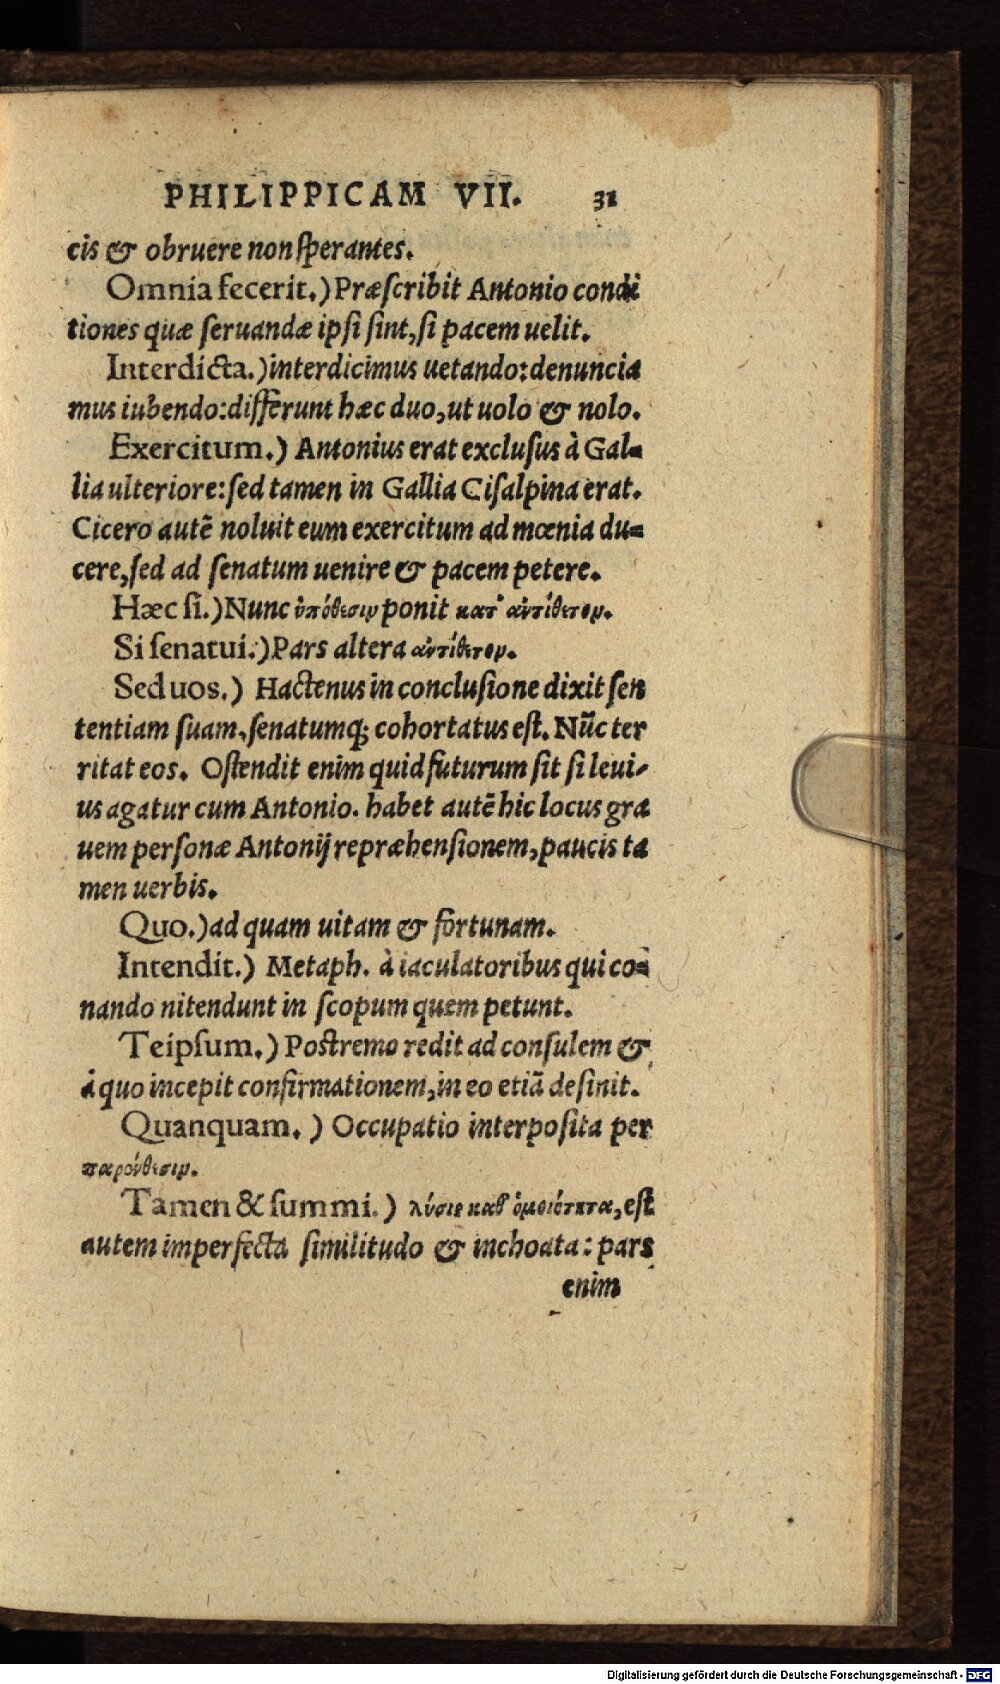 PHILIPPICAM VII. 31
cis & obruere non ſperantes.
Omnia fecerit.) Præſcribit Antonio condi
tiones quæ ſeruandæ ipſi ſint, ſi pacem uelit.
Interdicta.) interdicimus uetando: denuncia
mus iubendo: differunt hæc duo, ut uolo & nolo.
Exercitum.) Antonius erat excluſus à Gal-
lia ulteriore: ſed tamen in Gallia Ciſalpina erat.
Cicero autē noluit eum exercitum ad mœnia du-
cere, ſed ad ſenatum uenire & pacem petere.
Hæc ſi.) Nunc ὑπόθεσιν ponit κατ' ἀντίθετον.
Si ſenatui.) Pars altera ἀντίθετον.
Sed uos.) Hactenus in concluſione dixit ſen
tentiam ſuam, ſenatumq; cohortatus eſt. Nūc ter
ritat eos. Oſtendit enim quid futurum ſit ſi leui-
us agatur cum Antonio. habet autē hic locus gra
uem perſonæ Antonij repræhenſionem, paucis ta
men uerbis.
Quo.) ad quam uitam & fortunam.
Intendit.) Metaph. à iaculatoribus qui co-
nando nitendunt in ſcopum quem petunt.
Teipſum.) Poſtremo redit ad conſulem &
à quo incepit confirmationem, in eo etiā deſinit.
Quanquam.) Occupatio interpoſita per
παρένθεσιν.
Tamen & ſummi.) λύσις καθ' ὁμοιότητα, eſt
autem imperfecta ſimilitudo & inchoata: pars
enim
Digitalisierung gefördert durch die Deutsche Forschungsgemeinschaft - DFG